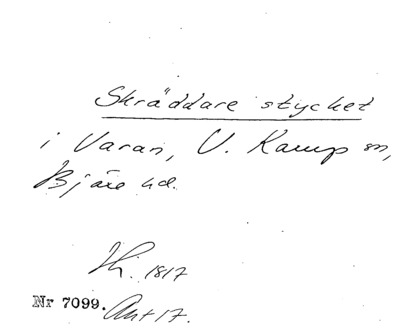 Skräddare stycket
i Varan, V. Karup sn,
Bjäre hd.
Th. 1817
Nr 7099. Ant 17.